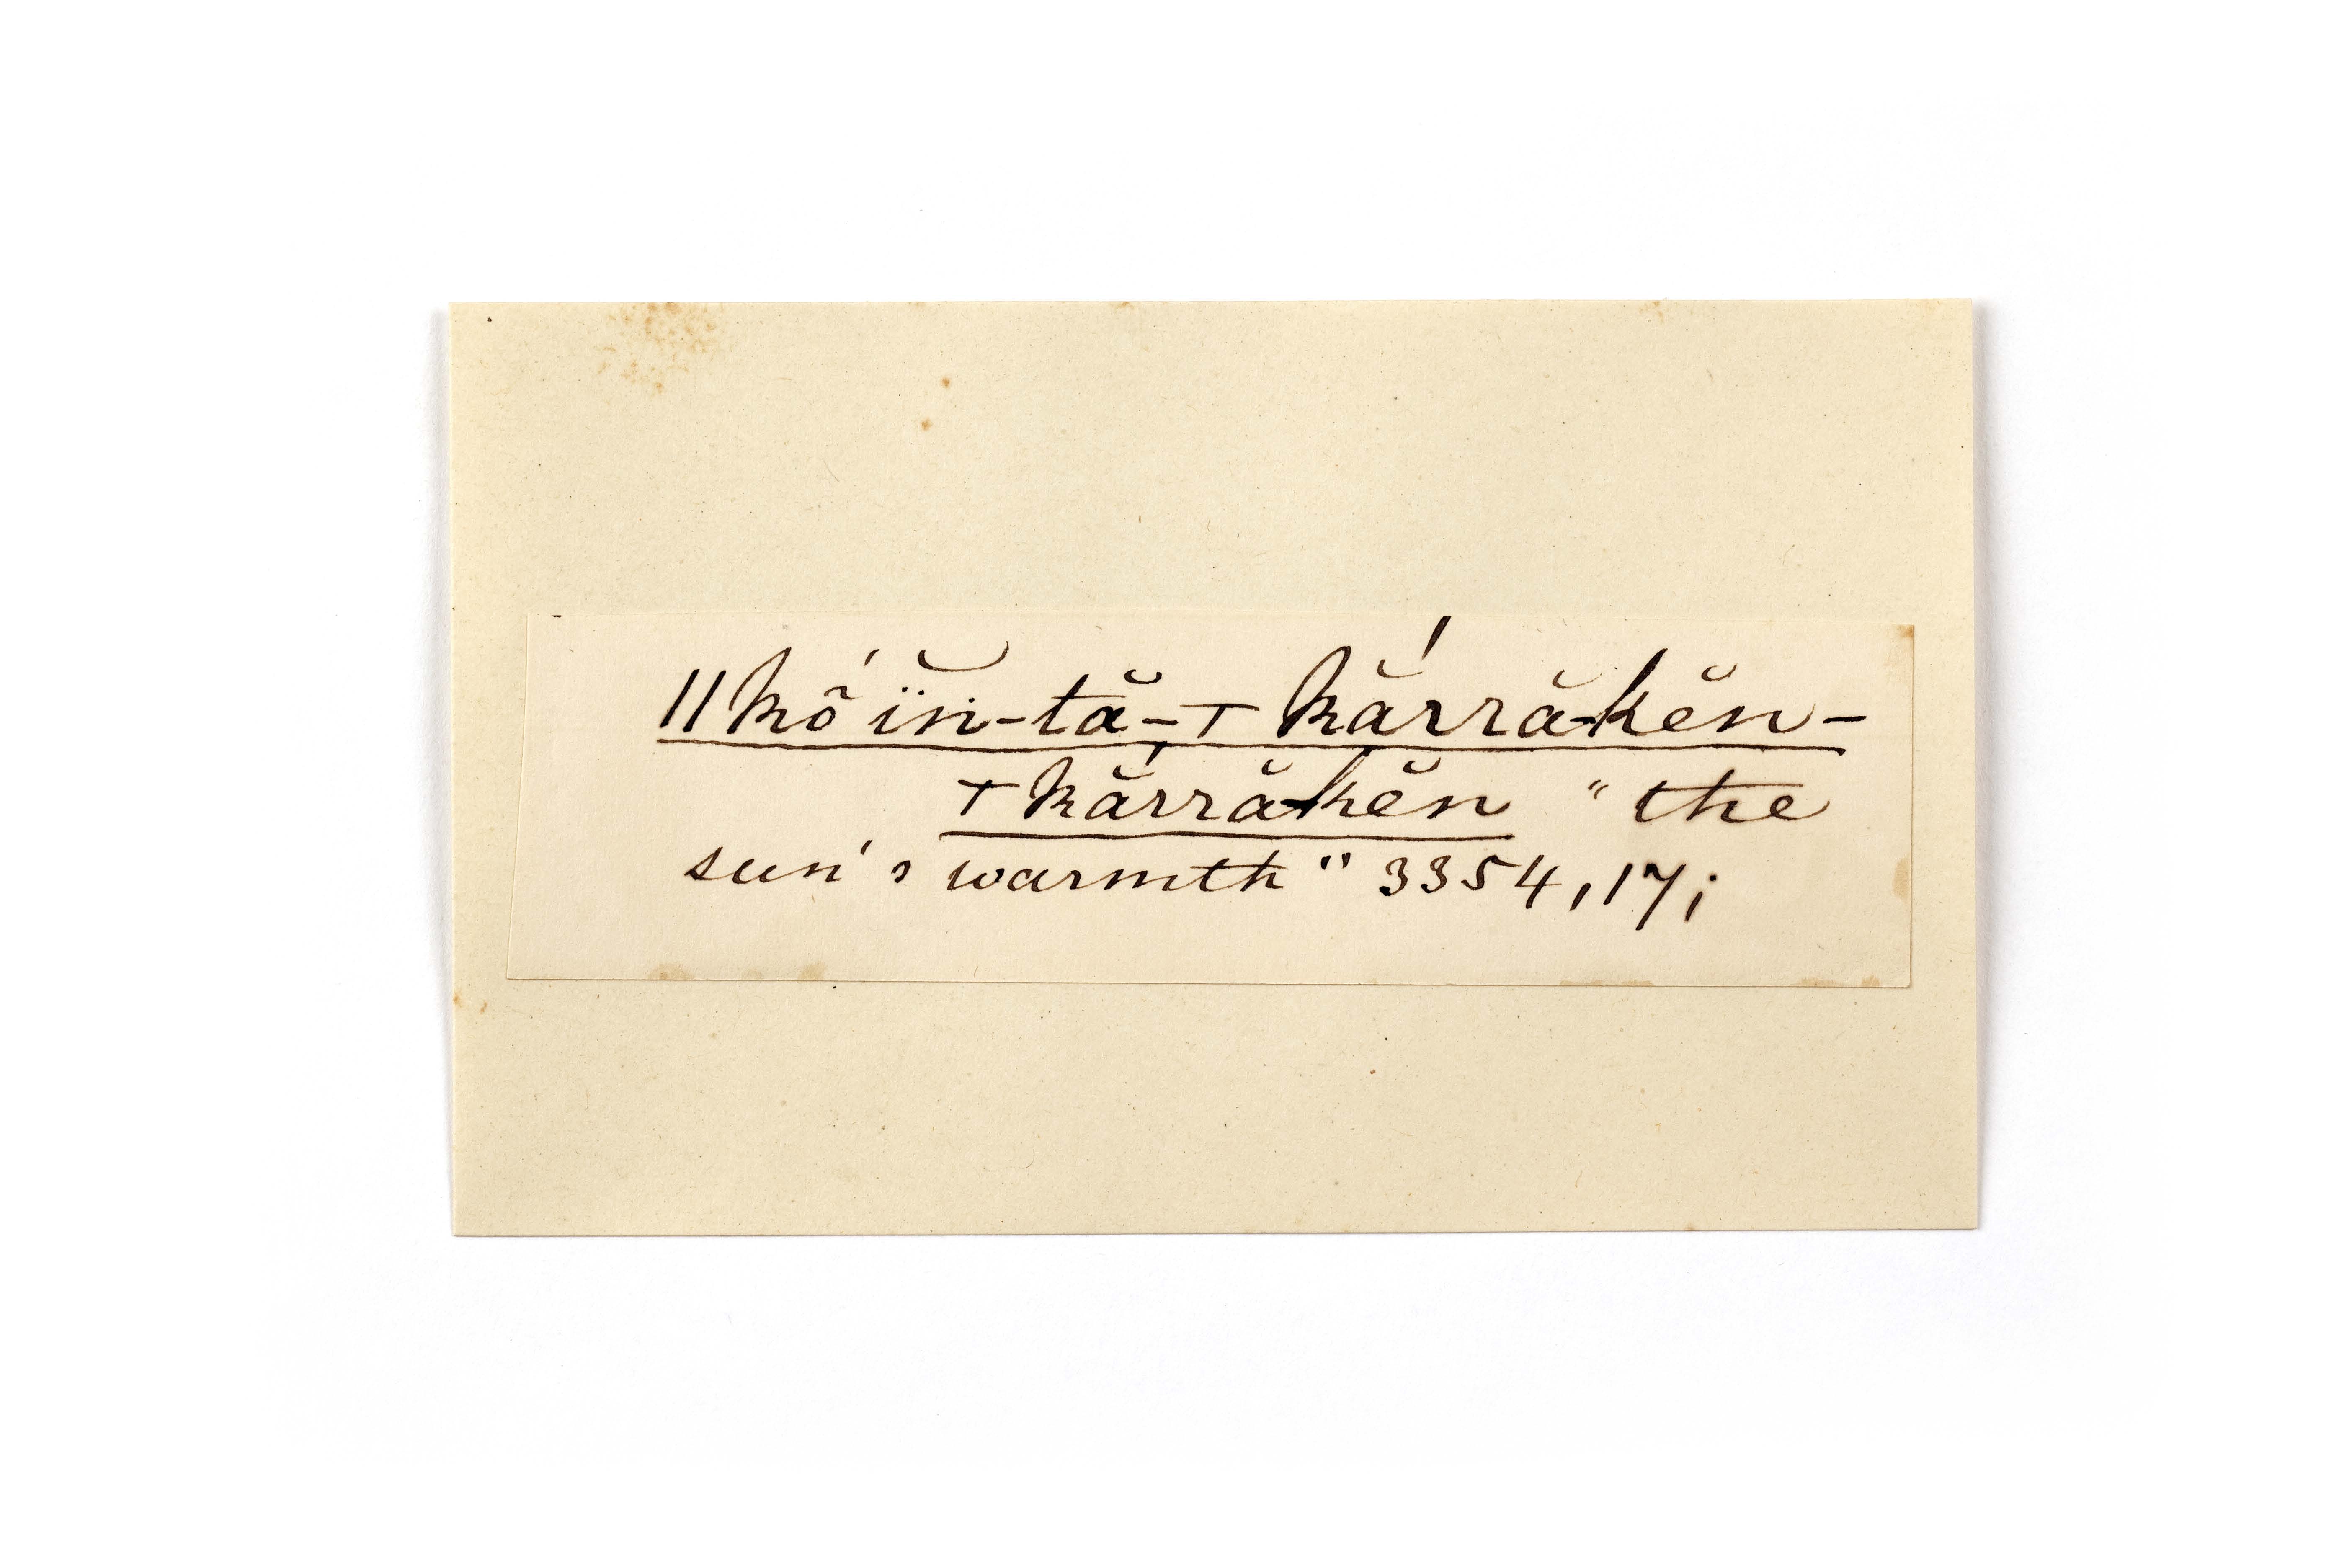 ǁkō̃́ ï̆ṅ-tă-⊤kắrră-kĕn-
⊤kắrră-kĕn “the
sun's warmth” 3354,17;